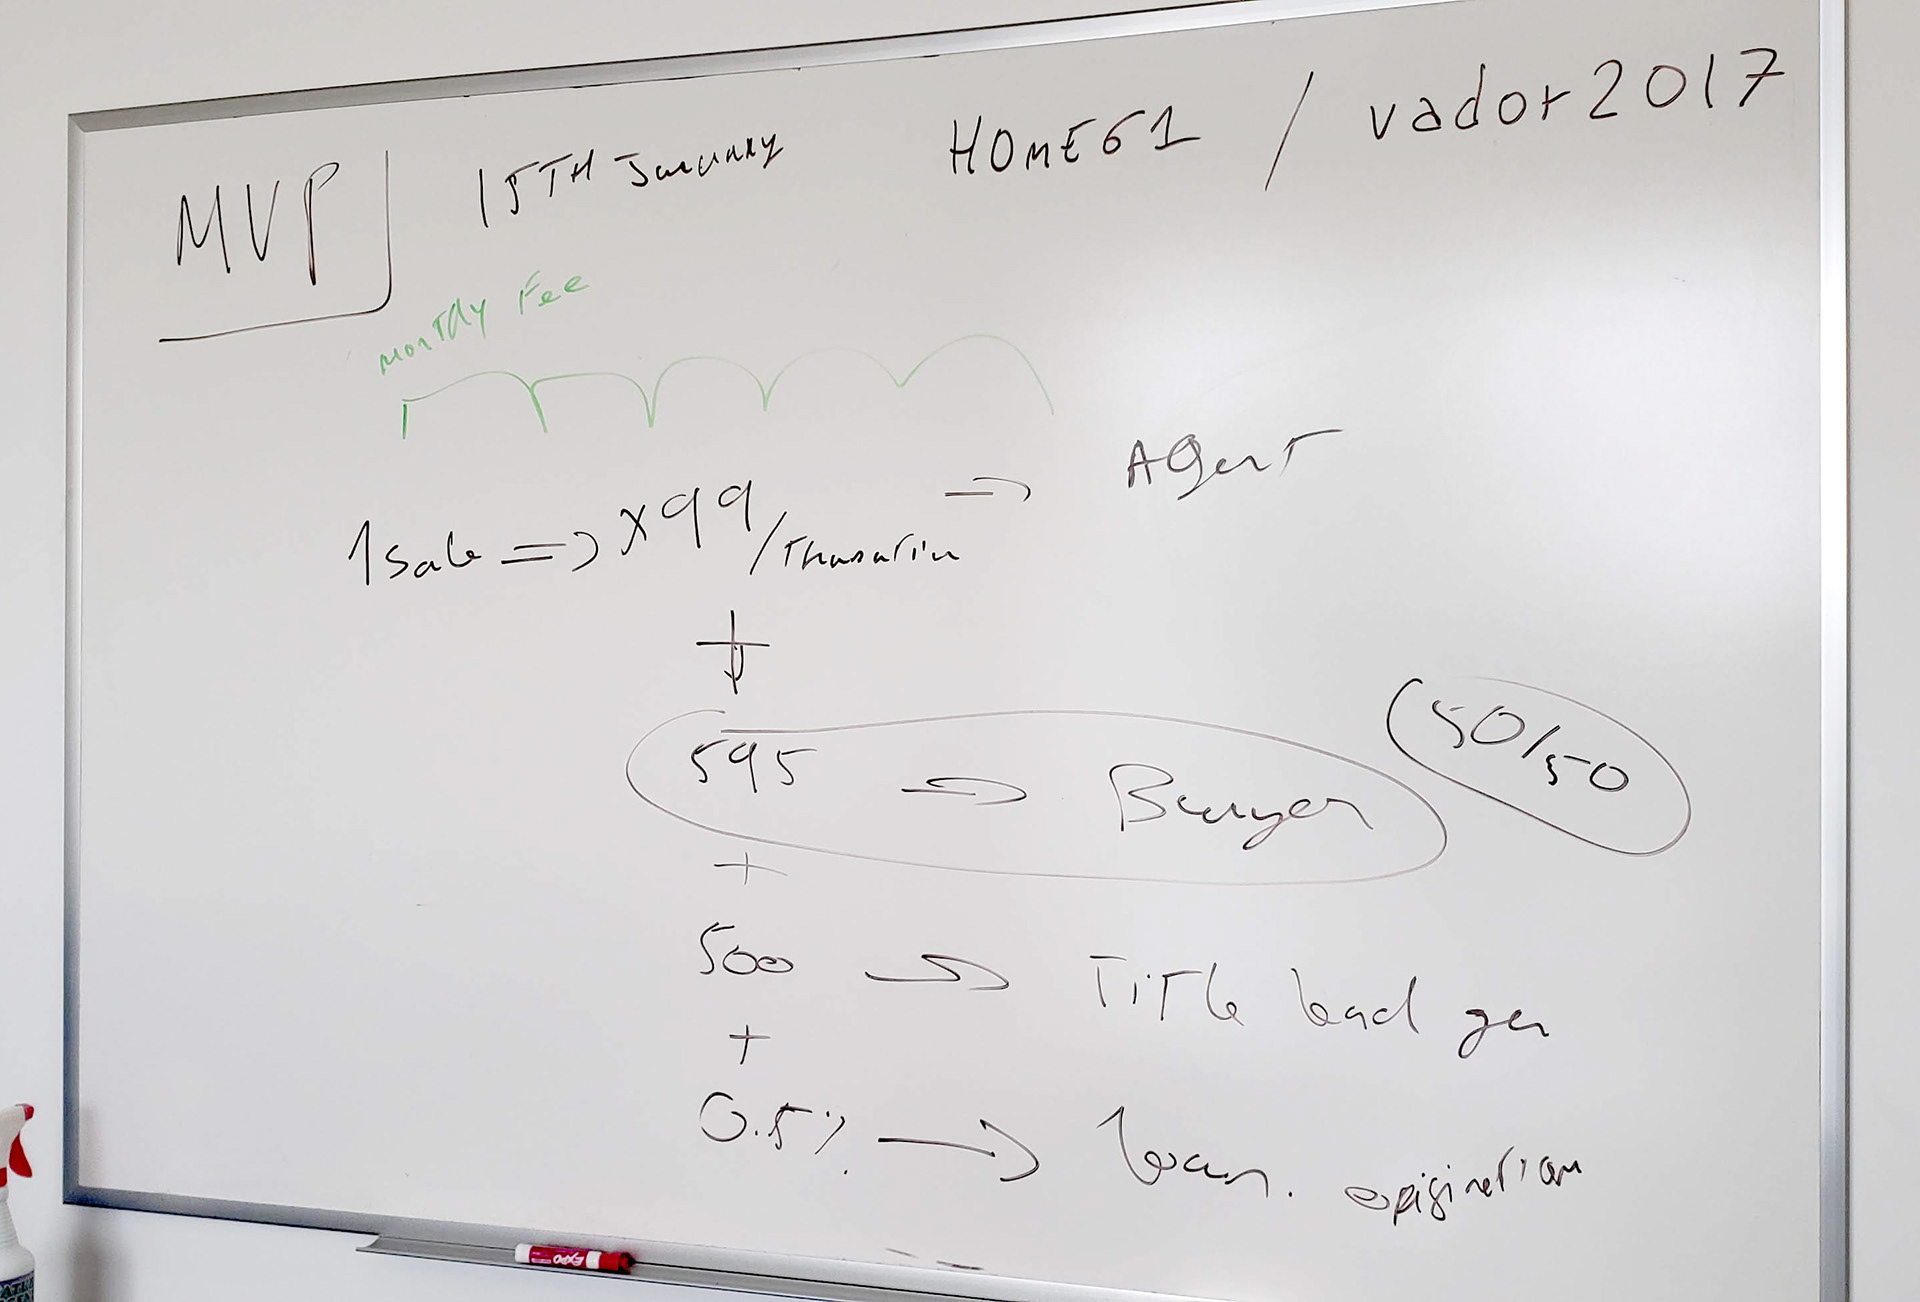 MVP 15TH January HOME61 / vador2017
Monthly Fee
1 Sale => x99 /Transaction -> Agent
+
595 -> Buyer 50/50
+
500 -> Title lead gen
+
0.5% -> loan. origination
EXPO